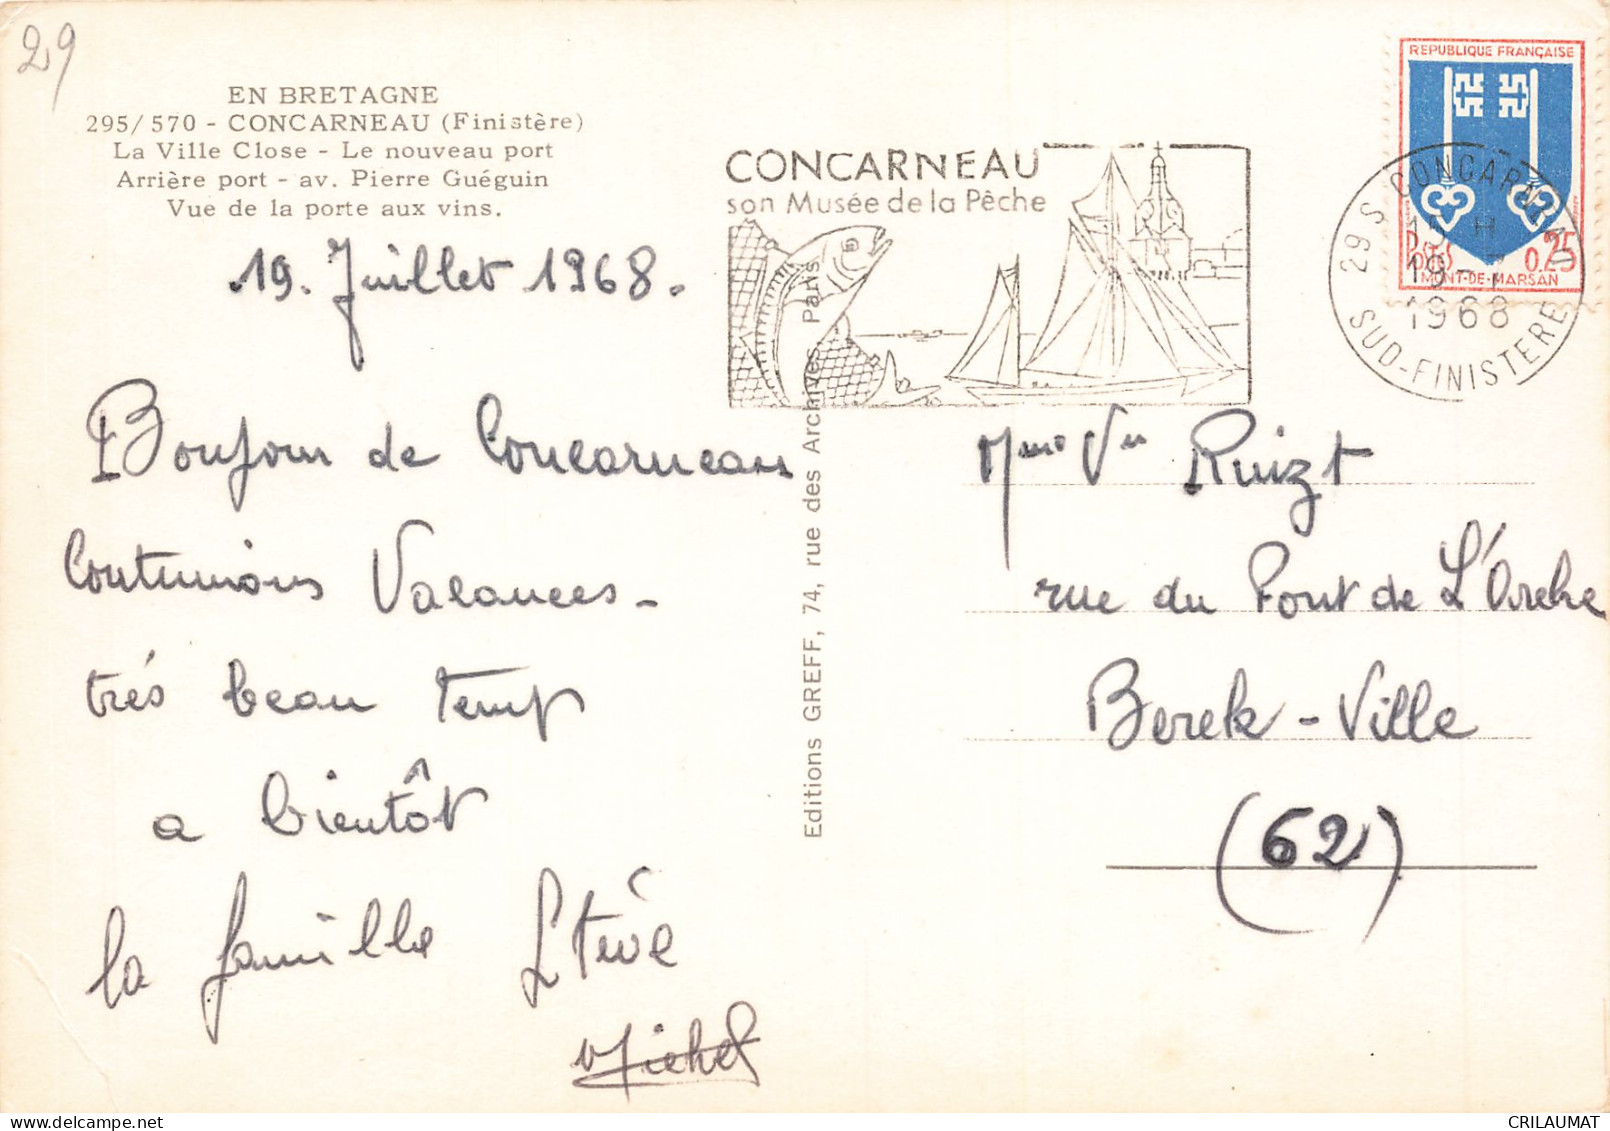 29
EN BRETAGNE
295/570 - CONCARNEAU (Finistère)
La Ville Close - Le nouveau port
Arrière port - av. Pierre Guéguin
Vue de la porte aux vins.
19. Juillet 1968.
Bonjour de Concarneau
Continuions Vacances -
trés beau temp
a bientôt
la famille Stève
Michel
Editions GREFF, 74, rue des Archives Paris
CONCARNEAU
son Musée de la Pêche
REPUBLIQUE FRANÇAISE
0.25
MONT-DE-MARSAN
29 S CONCARNEAU
15 H
19 - 7
1968
SUD-FINISTERE
Mme Ve Ruizt
rue du Pont de L'Arche
Berck - Ville
(62)
CRILAUMAT